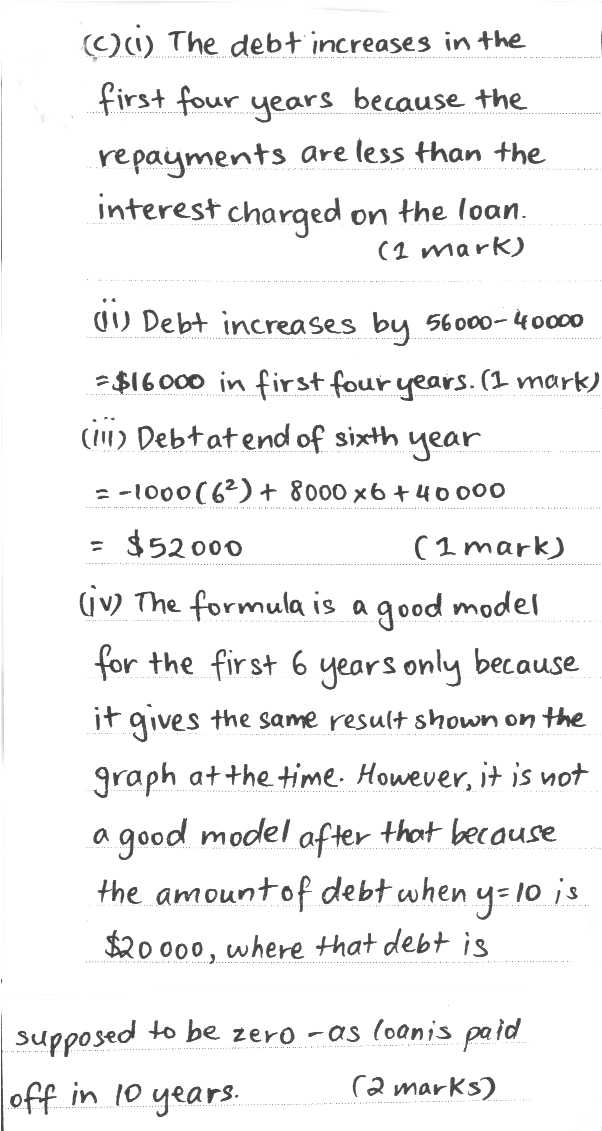 (c)(i) The debt increases in the
first four years because the
repayments are less than the
interest charged on the loan.
(1 mark)
(ii) Debt increases by 56000-40000
=$16000 in first four years. (1 mark)
(iii) Debt at end of sixth year
= -1000(6²) + 8000 x 6 + 40000
= $52000 (1 mark)
(iv) The formula is a good model
for the first 6 years only because
it gives the same result shown on the
graph at the time. However, it is not
a good model after that because
the amount of debt when y=10 is
$20000, where that debt is
supposed to be zero - as loan is paid
off in 10 years. (2 marks)